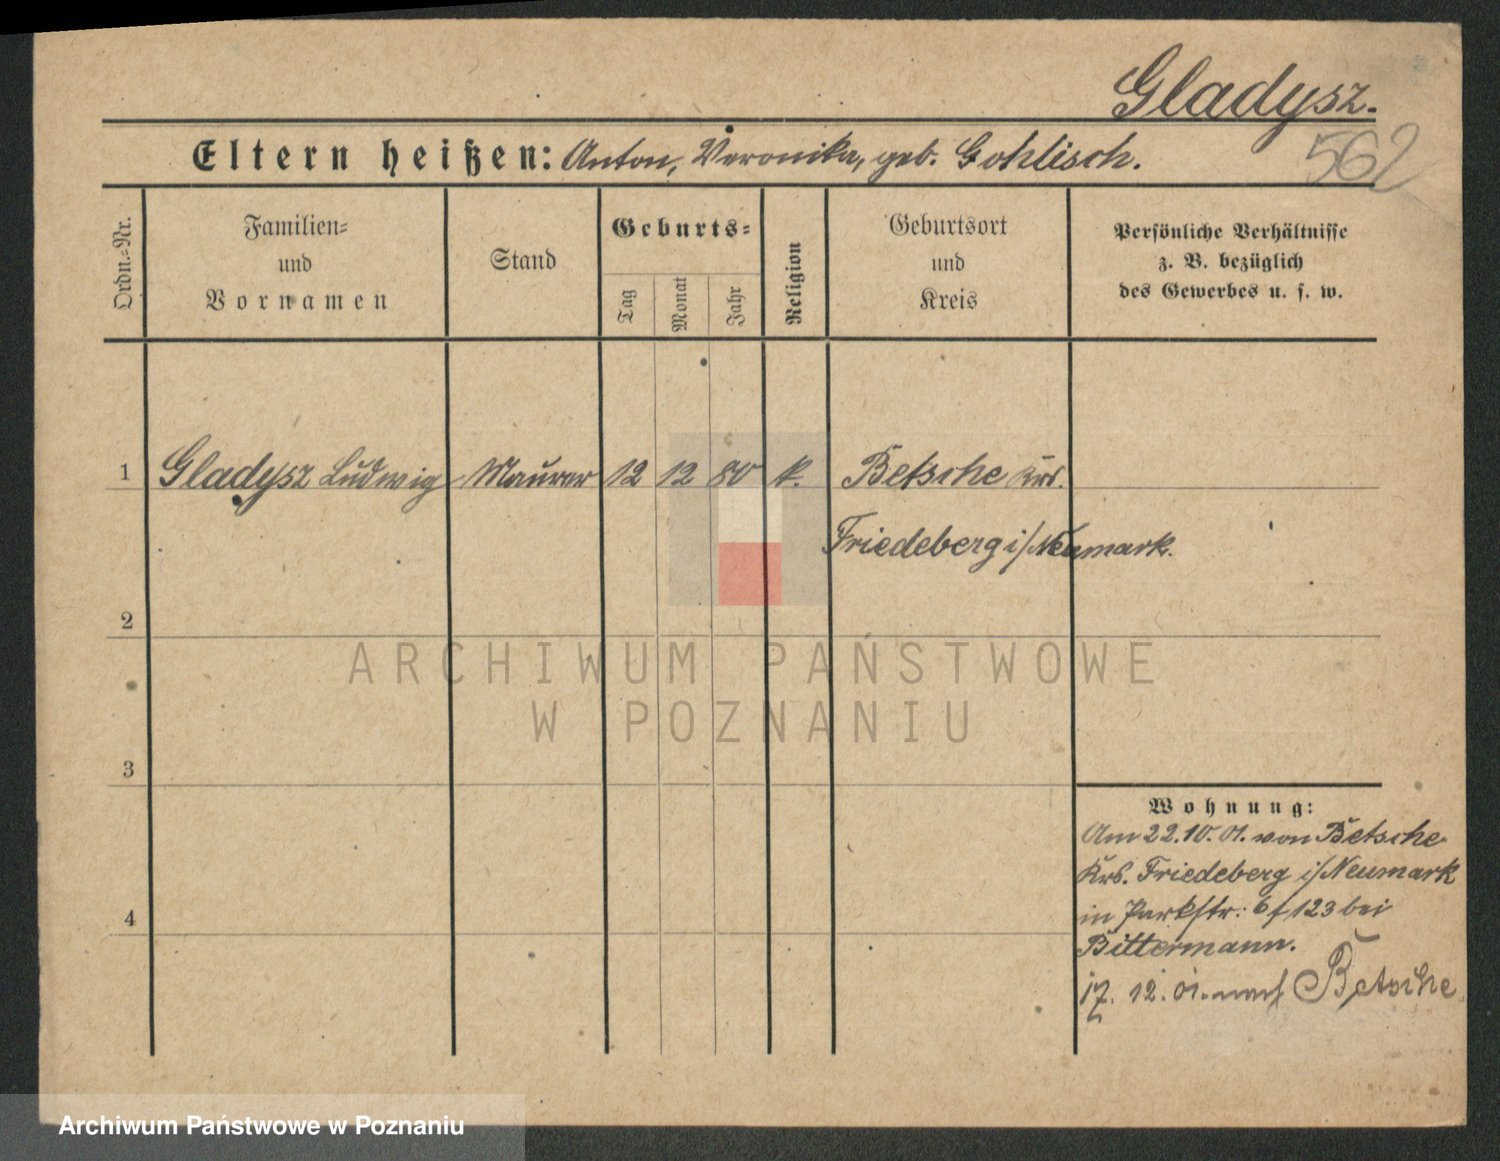 Gladysz.
562
Eltern heißen: Anton, Veronika, geb. Gohlisch.
Ordn.-Nr.
Familien-
und
Vornamen
Stand
Geburts-
Tag
Monat
Jahr
Religion
Geburtsort
und
Kreis
Persönliche Verhältnisse
z. B. bezüglich
des Gewerbes u. s. w.
1 Gladysz Ludwig Maurer 12 12 80 k. Betsche Krs.
Friedeberg i/Neumark.
2
3
4
Wohnung:
Am 22.10.01. von Betsche
Krs. Friedeberg i/Neumark
in Parkstr. 6 f 123 bei
Bittermann.
17. 12. 01. nach Betsche
ARCHIWUM PAŃSTWOWE
W POZNANIU
Archiwum Państwowe w Poznaniu